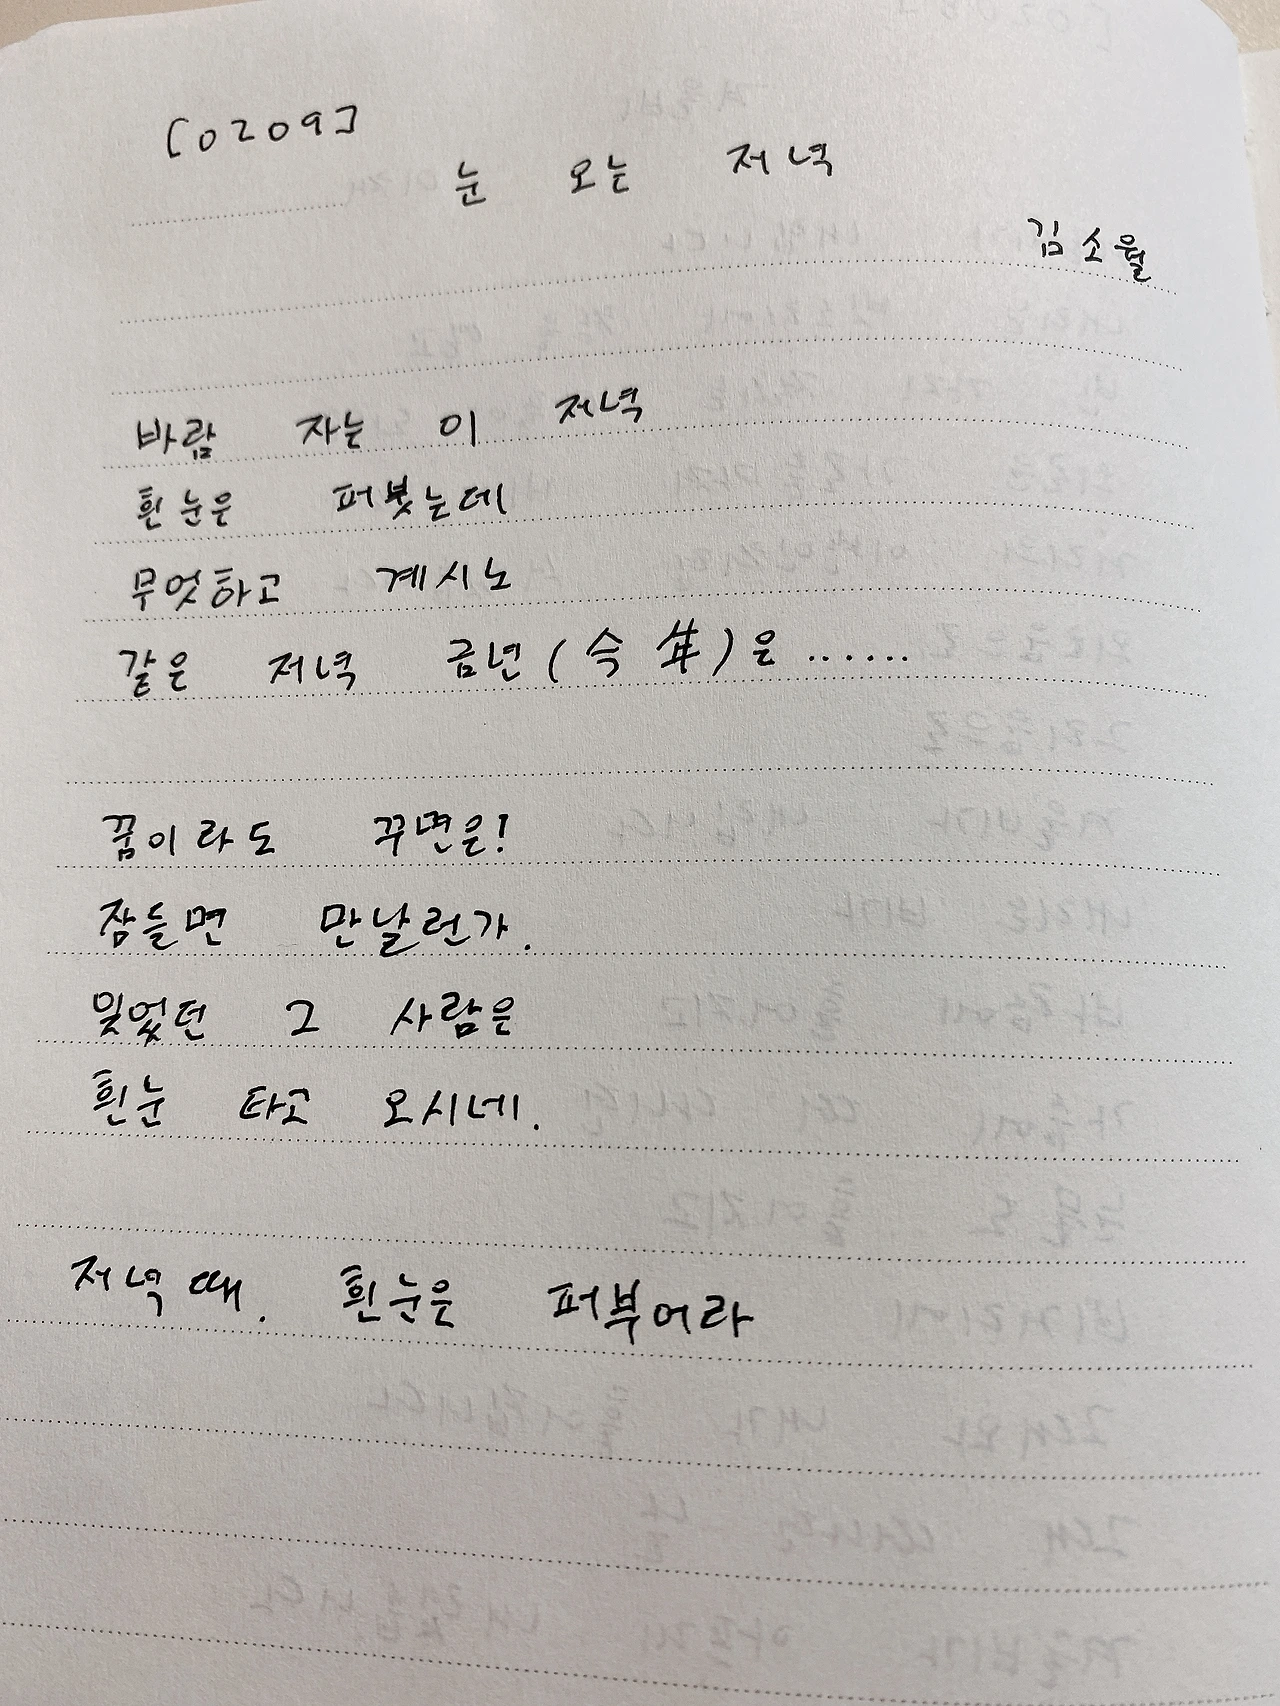 [0209]
눈 오는 저녁
김소월
바람 자는 이 저녁
흰눈은 퍼붓는데
무엇하고 계시노
같은 저녁 금년(今年)은 ......
꿈이라도 꾸면은!
잠들면 만날런가.
잊었던 그 사람은
흰눈 타고 오시네.
저녁때. 흰눈은 퍼부어라